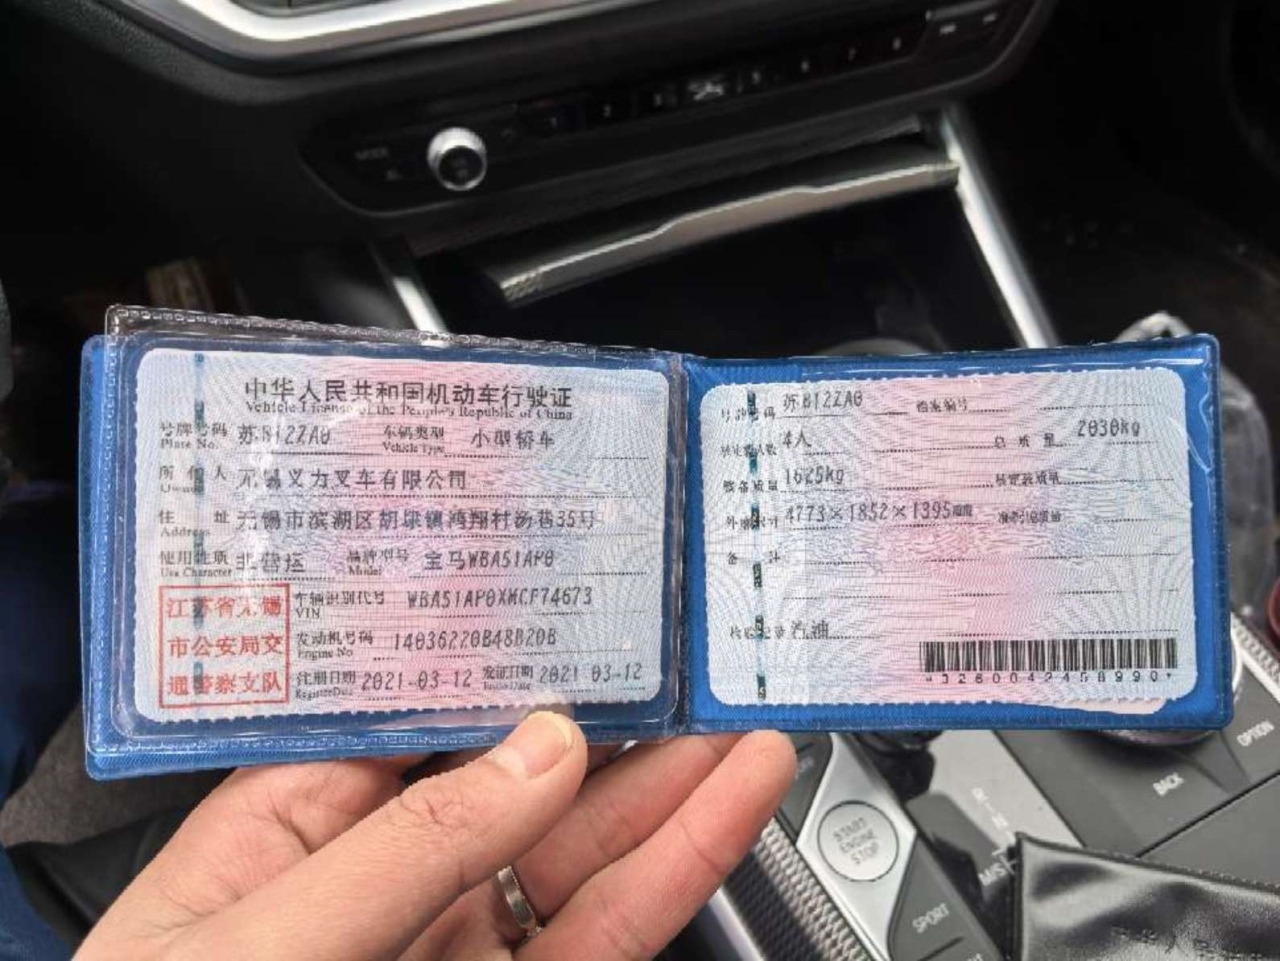 中华人民共和国机动车行驶证
Vehicle License of the People's Republic of China
号牌号码 苏B12ZA0 车辆类型 小型轿车
Plate No. Vehicle Type
所有人 无锡义力叉车有限公司
Owner
住址 无锡市滨湖区胡埭镇鸿翔村汤巷35号
Address
使用性质 非营运 品牌型号 宝马WBA51AP0
Use Character Model
江苏省无锡
市公安局交
通警察支队
车辆识别代号 WBA51AP0XMCF74673
VIN
发动机号码 14036220B48B20B
Engine No.
注册日期 2021-03-12 发证日期 2021-03-12
Register Date Issue Date
号牌号码 苏B12ZA0 档案编号
核定载人数 4人 总质量 2030kg
整备质量 1625kg 核定载质量
外廓尺寸 4773×1852×1395mm 准牵引总质量
备注
检验记录 汽油
*3260042458990*
START
ENGINE
STOP
SPORT
BACK
OPTION
M/S